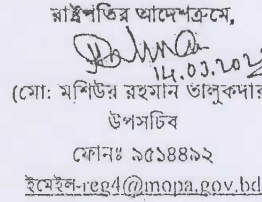 রাষ্ট্রপতির আদেশক্রমে,
14.03.202
(মো: মশিউর রহমান তালুকদার
উপসচিব
ফোনঃ ৯৫১৪৪৯২
ইমেইল-reg4@mopa.gov.bd